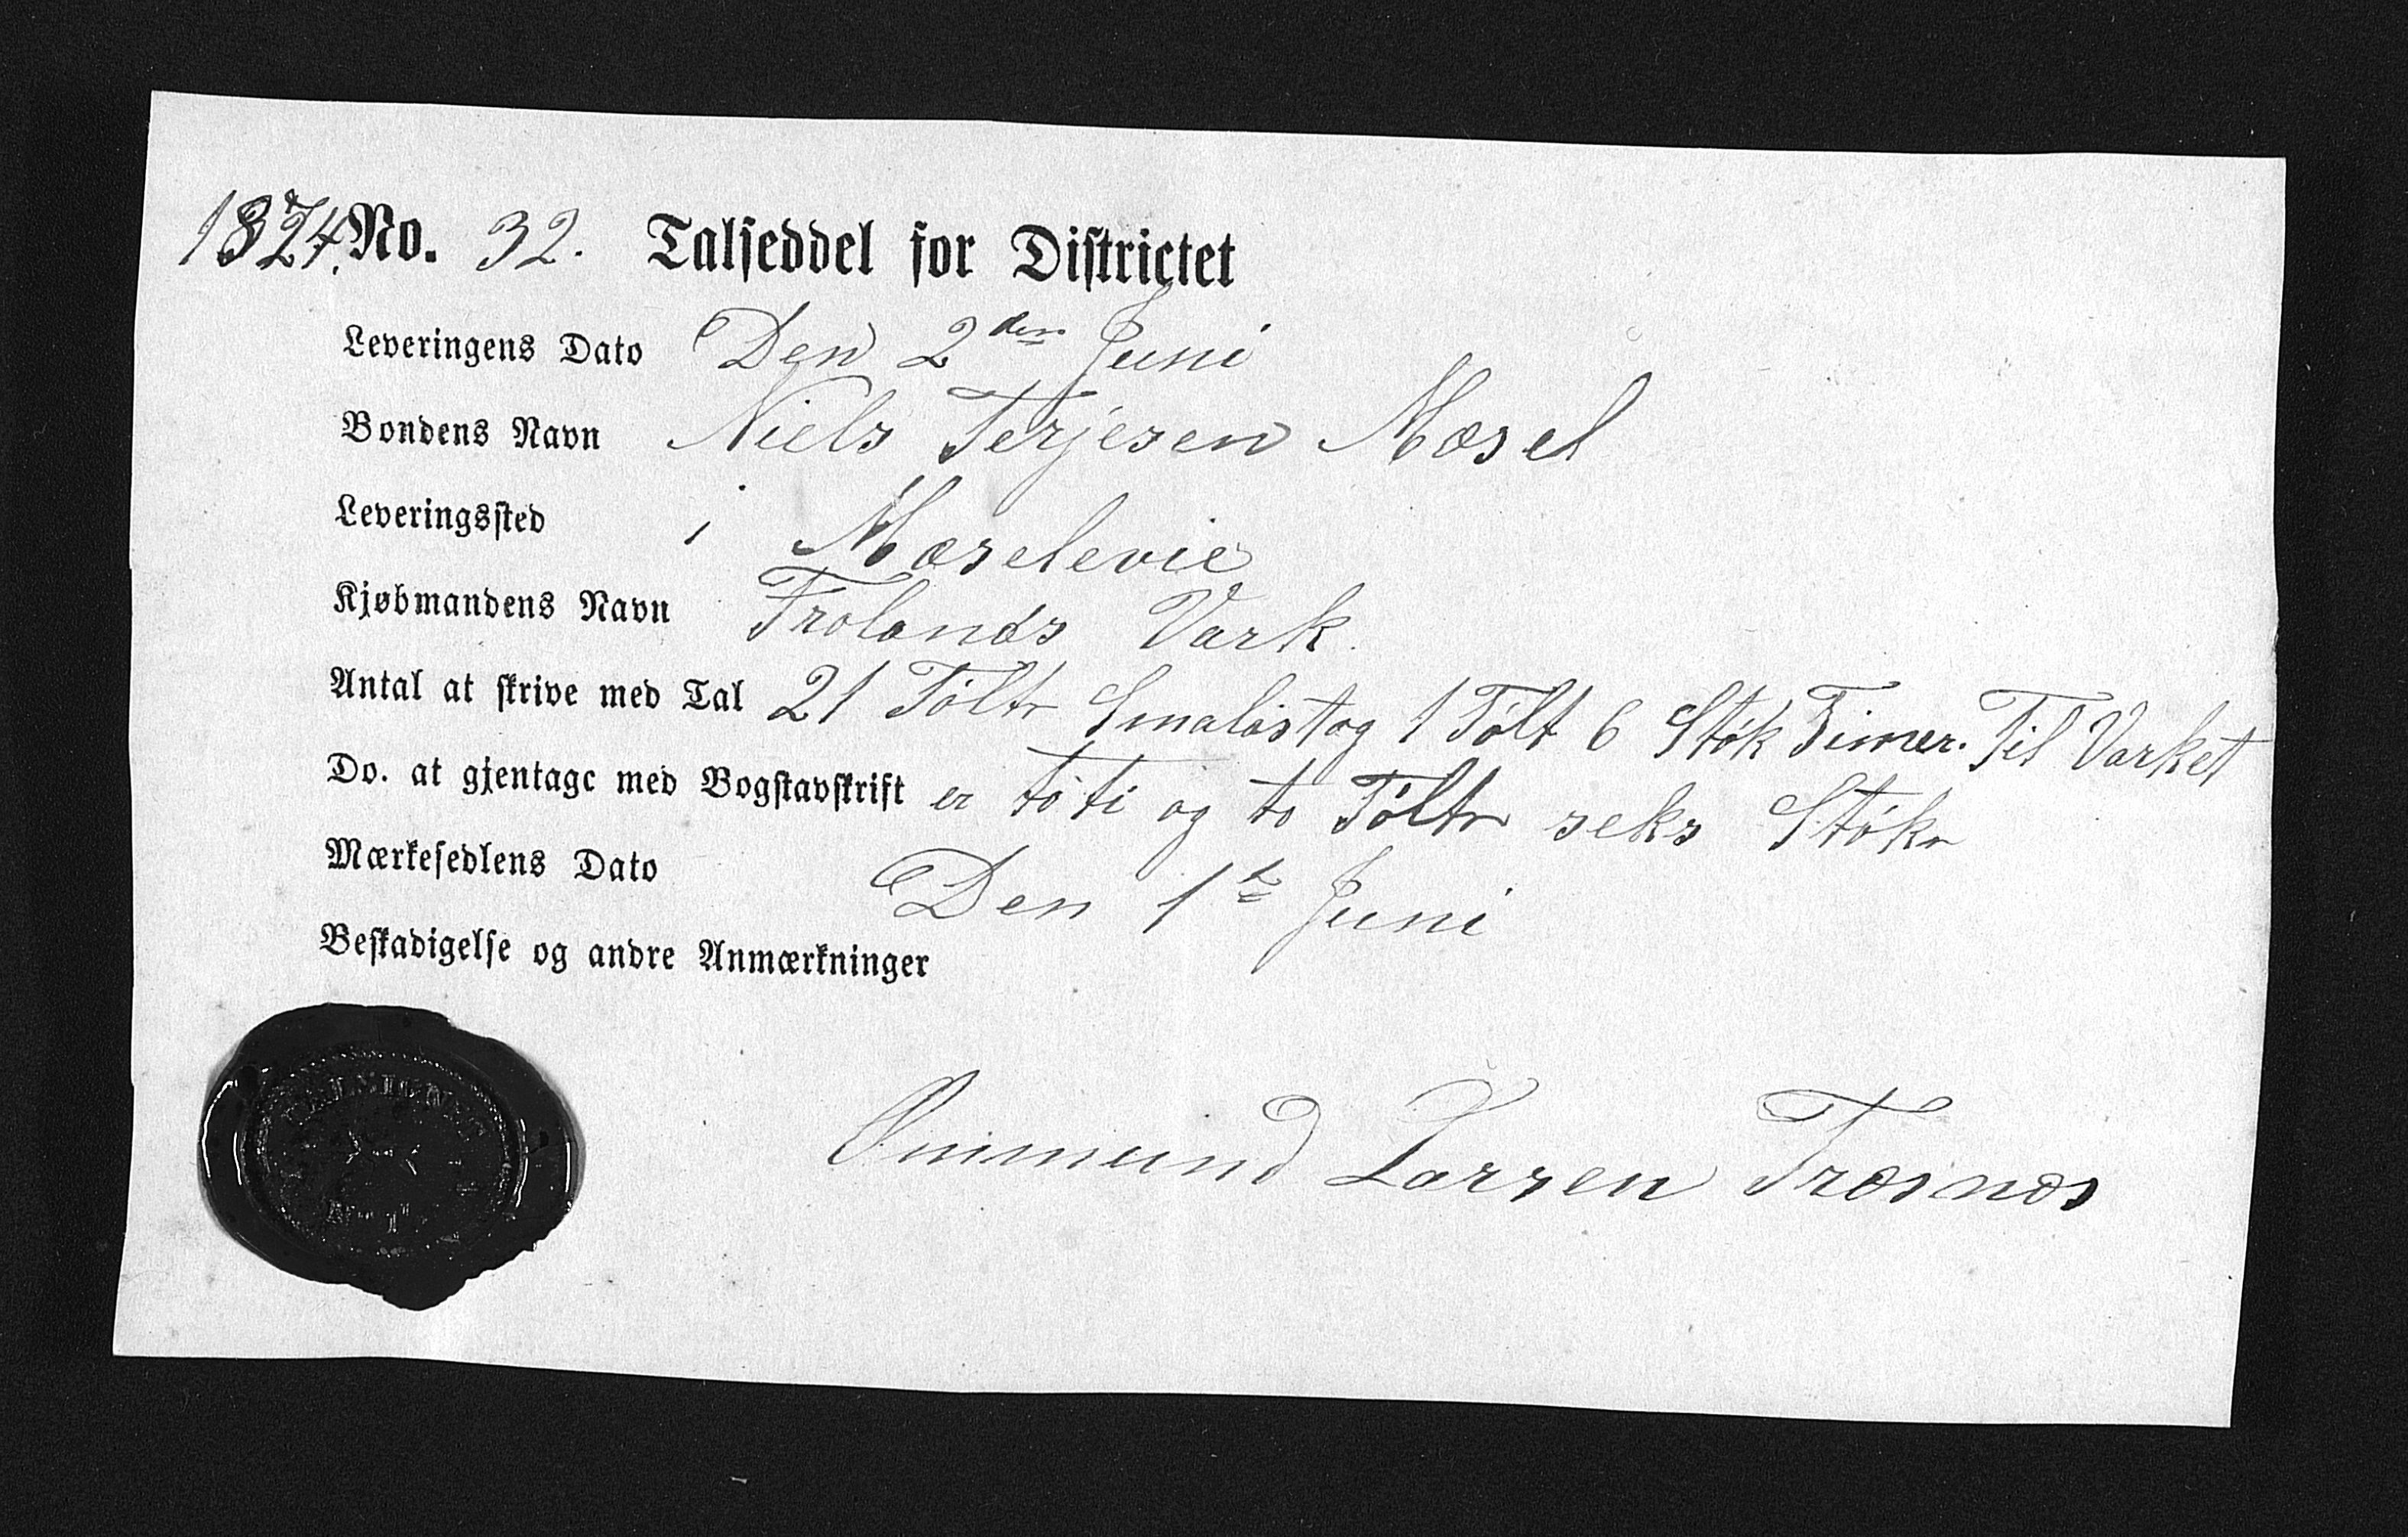 1874. No. 32. Talseddel for Districtet
Leveringens Dato Den 2den Juni
Bondens Navn Niels Terjesen Mæsel
Leveringssted i Mæselevie
Kjøbmandens Navn Frolands Værk.
Antal at skrive med Tal 21 Töltr Smalast og 1 Tölt 6 Stök Timer. Til Værket
Do. at gjentage med Bogstavskrift er to ti og to Töltr seks Stökr
Mærkesedlens Dato Den 1te Juni
Beskadigelse og andre Anmærkninger
Ommund Larsen Træsnæs